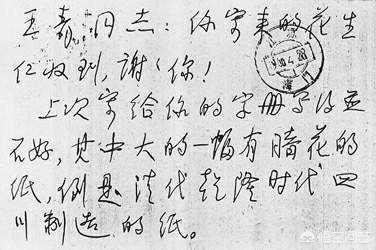 王青同志：你寄来的花生
仁收到，谢谢你！
上次寄给你的字册写得并
不好，其中大的一幅有暗花的
纸，倒是清代乾隆时代四
川制造的纸。